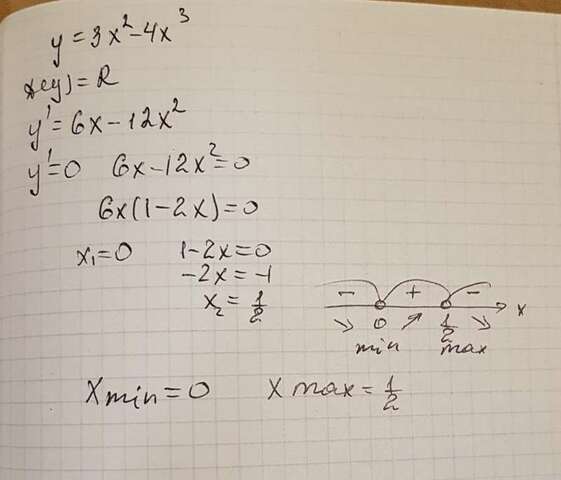 y = 3x² - 4x³
D(y) = R
y' = 6x - 12x²
y' = 0 6x - 12x² = 0
6x(1 - 2x) = 0
x₁ = 0 1 - 2x = 0
-2x = -1
x₂ = 1/2
- + -
0 1/2 x
↘ ↗ ↘
min max
x min = 0 x max = 1/2